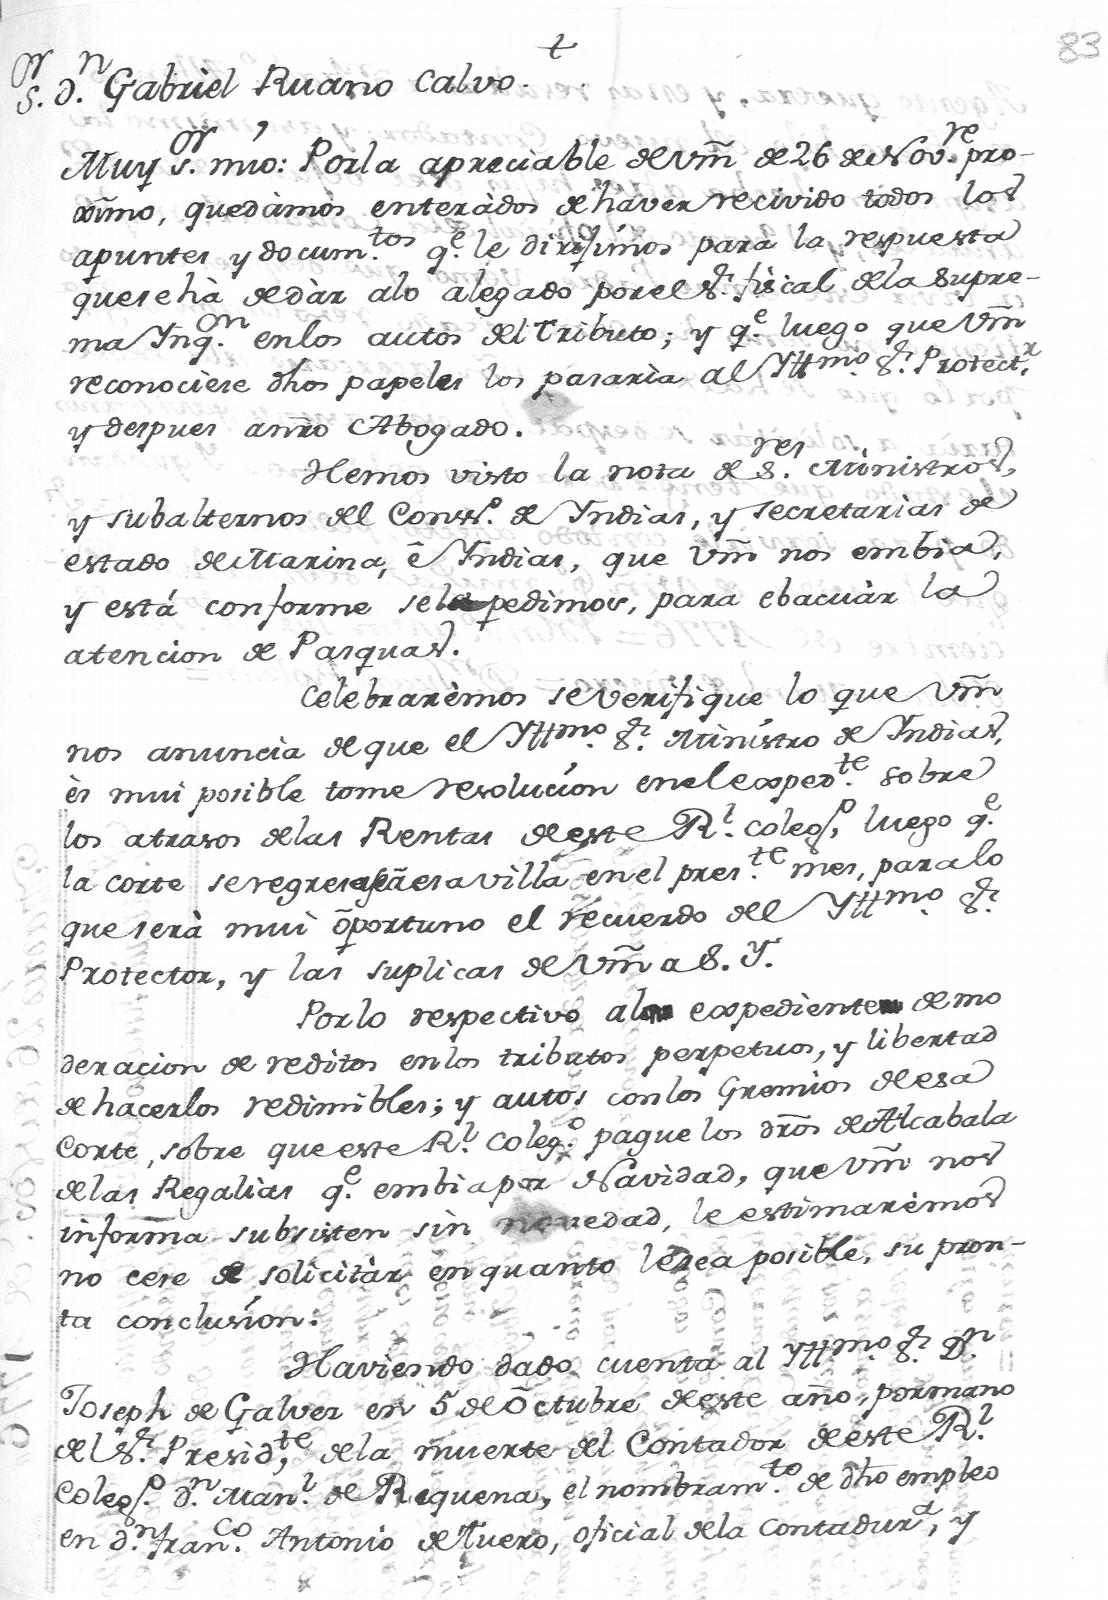 +
83
S.or D.n Gabriel Ruano Calvo.
Muy S.or mío: Porla apreciable de Vm̃ de 26 de Nov.re pro-
ximo, quedàmos enteràdos de haver recivido todos los
apuntes y docum.tos q.e le dirijímos para la respuesta
que se hà de dàr alo alegado porel S.r fiscal dela Supre-
ma Ynq.on enlos autos del Tributo; y q.e luego que Vm̃
reconociese dhos papeles los pasarìa al Yttmo. S.r Protect.r
y despues anr̃o Abogado.
Hemos visto la nota de S.res Ministros,
y subalternos del Cons.o de Yndias, y secretarias de
estado de Marina, ê Yndias, que Vm̃ nos embia,
y está conforme sela pedimos, para ebacuàr la
atencion de Pasquas.
Celebrarèmos severifique lo que Vm̃
nos anuncia de que el Yttmo. S.r Minístro de Yndias,
ès mui posible tome resolucíon enel exped.te sobre
los atrasos delas Rentas de este R.l Coleg.o, luego q.e
la corte seregrese àesa villa en el pres.te mes, paralo
que serà mui oportuno el recuerdo del Yttmo. S.r
Protector, y las suplicas de Vm̃ a S. Y.
Porlo respectivo al expediente demo
deracion de reditos enlos tributos perpetuos, y libertad
de hacerlos redimibles; y autos conlos Gremios de esa
Corte, sobre que este R.l Coleg.o pague los dr̃os de Alcabala
delas Regalias q.e embia por Navidad, que Vm̃ nos
informa subsisten sin novedad, le estimarèmos
no cese de solicitàr enquanto lesea posible, su pron-
ta conclusíon.
Haviendo dado cuenta al Yttmo. S.r D.n
Joseph de Galvez en 5 de Octubre de este año, pormano
del S.r Presid.te, dela muerte del Contador de este R.l
Coleg.o d.n Man.l de Requena, el nombram.to de dho empleo
en d.n fran.co Antonio de Tuero, oficial dela Contadur.a, y